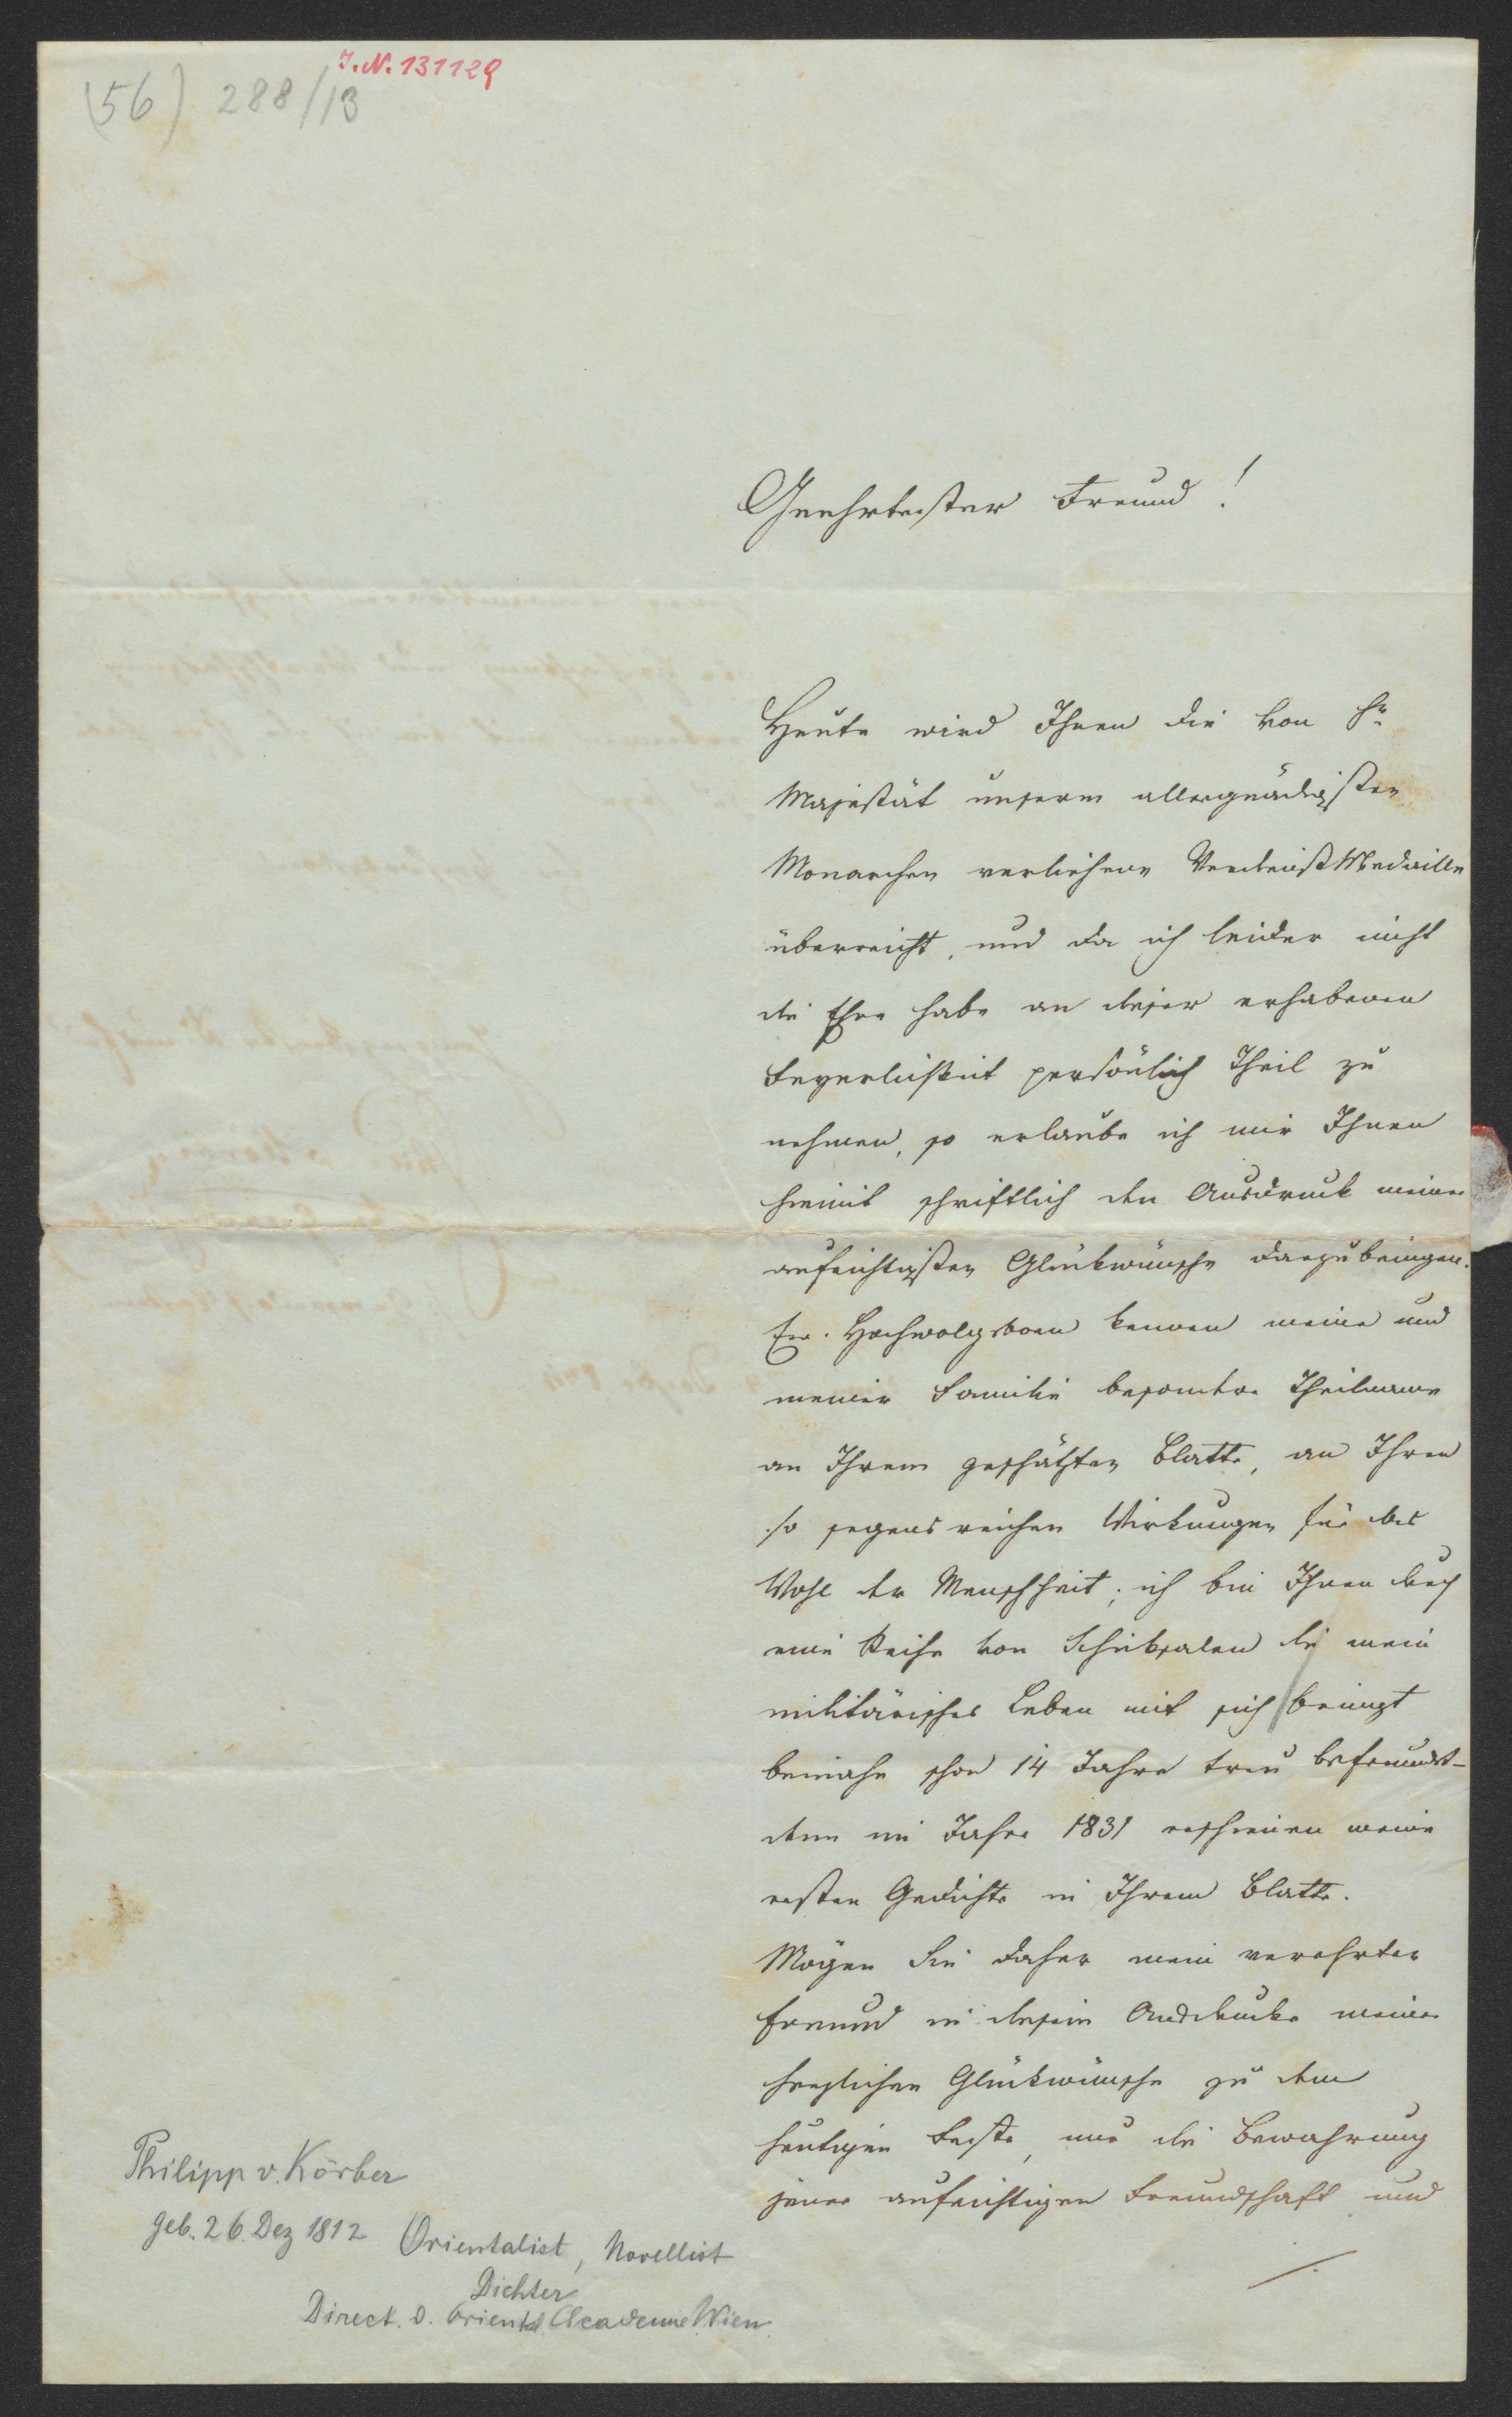 J.N. 131129
(56) 288/13
Geehrtester Freund!
Heute wird Ihnen die von Sr
Majestät unserm allergnädigsten
Monarchen verliehene Verdienst Medaille
überreicht, und da ich leider nicht
die Ehre habe an dieser erhabenen
Feyerlichkeit persönlich Theil zu
nehmen, so erlaube ich mir Ihnen
hiemit schriftlich den Ausdruck meiner
aufrichtigsten Glückwünsche darzubringen.
Ew. Hochwolgeboren kennen meine und
meiner Familie besondere Theilname
an Ihrem geschätzten Blatte, an Ihren
so segensreichen Wirkungen für das
Wohl der Menschheit; ich bin Ihnen durch
eine Reihe von Schicksalen die mein
militärisches Leben mit sich bringt
beinahe schon 14 Jahre treu befreundet-
denn im Jahre 1831 erschienen meine
ersten Gedichte in Ihrem Blatte.
Mögen Sie daher mein verehrter
Freund in diesem Ausdrucke meiner
herzlichen Glückwünsche zu dem
heutigen Feste, nur die Bewahrung
jener aufrichtigen Freundschaft und
./.
Philipp v. Körber
geb. 26. Dez 1812 Orientalist, Novellist
Dichter
Direct. d. Oriental. Academie Wien.